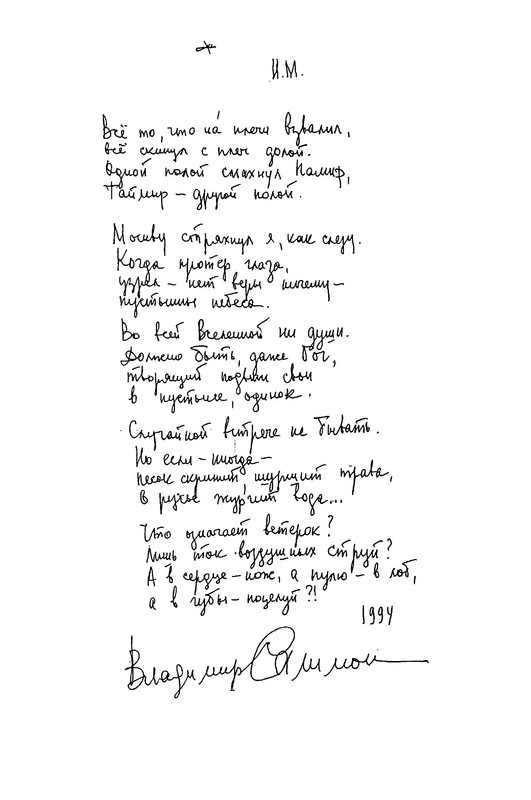 И.М.
Всё то, что на́ плечи взвалил,
всё скинул с плеч долой.
Одной полой смахнул Памир,
Таймир – другой полой.
Москву стряхнул я, как слезу.
Когда протёр глаза,
узрел – нет веры ничему –
пустынны небеса.
Во всей Вселенной ни души.
Должно быть, даже Бог,
творящий подвиги свои
в пустыне, одинок.
Случайной встрече не бывать.
Но если – иногда –
песок скрипит, шуршит трава,
в ручье журчит вода...
Что означает ветерок?
Лишь ток воздушных струй?
А в сердце – нож, а пулю – в лоб,
а в губы – поцелуй?!
1994
Владимир